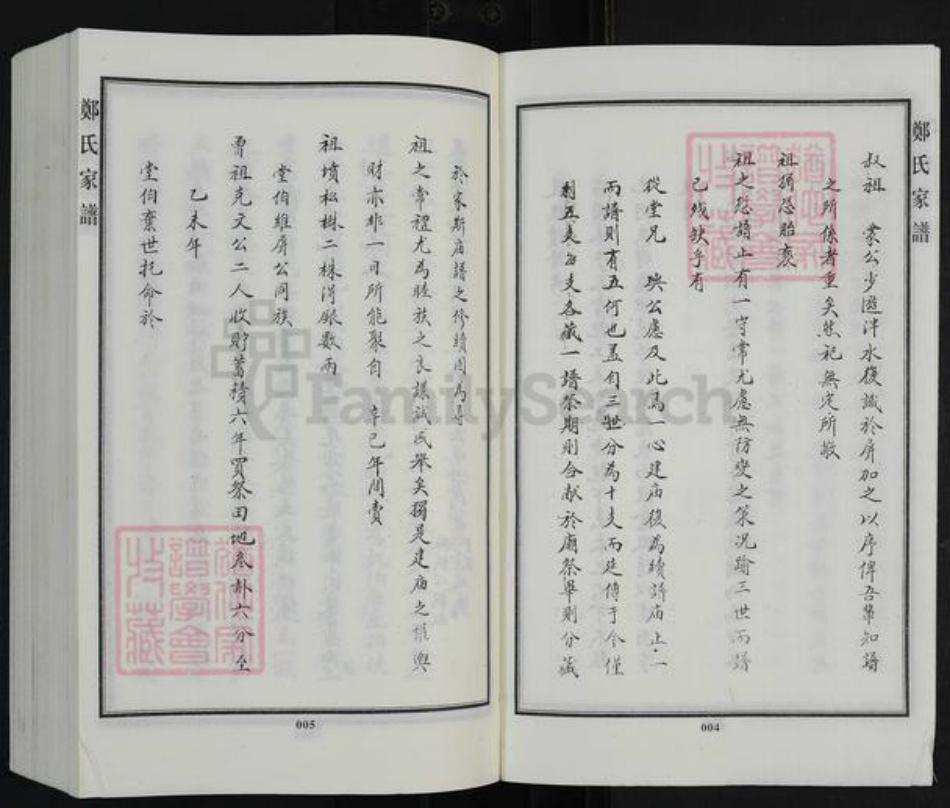 鄭氏家譜
叔祖 蒙公少遊泮水復識於屏加之以序俾吾輩知譜
之所係者重矣然祀無定所敬
祖猶恐貽褻
祖之恐譜止有一守常尤慮無防變之策況踰三世而譜
已殘缺乎有
從堂兄 璵公慮及此爲一心建庙後爲續譜庙止一
而譜則有五何也盖自三世分为十支而延傳于今僅
剩五支每支各藏一譜祭期則合献於廟祭畢則分藏
004
鄭氏家譜
於家斯庙譜之修續因為尋
祖之常禮尤為睦族之良謀誠盛舉矣獨是建庙之權輿
財亦非一日所能聚自 辛巳年间賣
祖墳松樹二株得銀数兩
堂伯維屏公同族
曾祖克文公二人收貯蓄積六年買祭田地叁卦六分至
乙未年
堂伯棄世托命於
005
FamilySearch